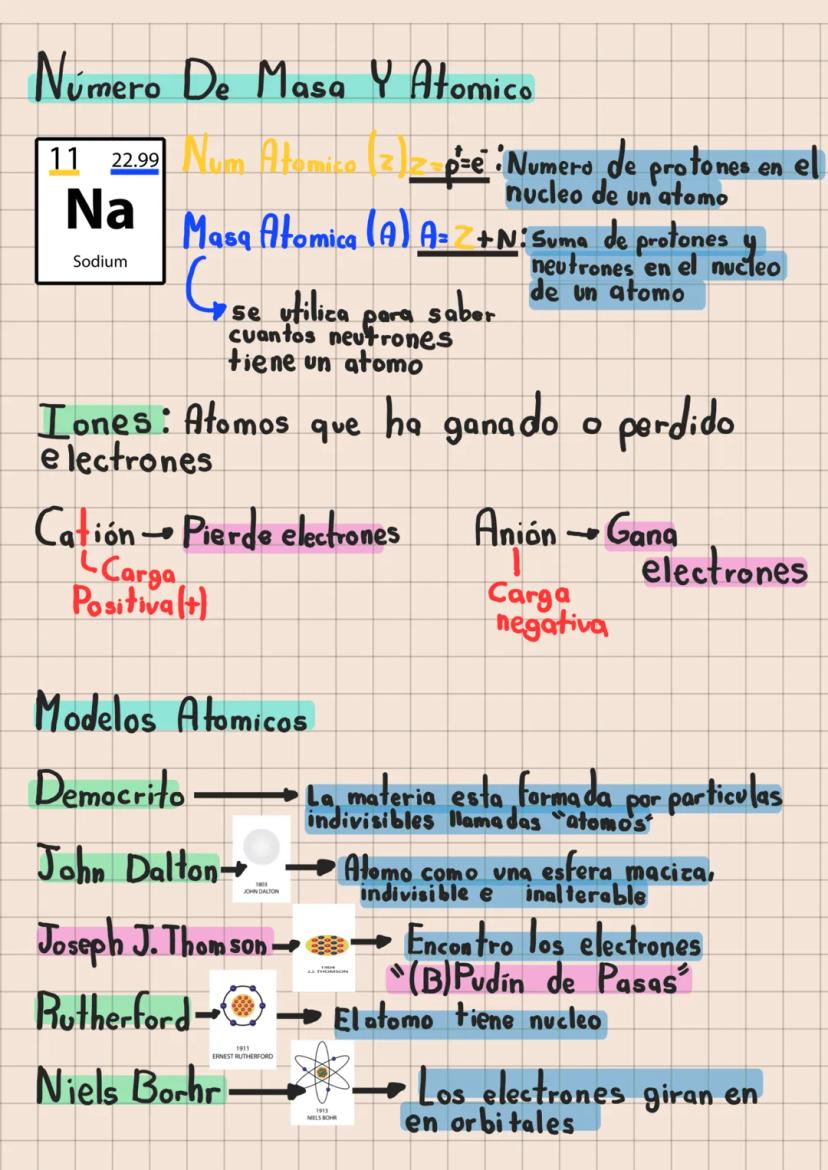 Número De Masa Y Atomico
11 22.99
Na
Sodium
Num Atomico (z) z=p⁺=e⁻: Numero de protones en el
nucleo de un atomo
Masa Atomica (A) A=Z+N: Suma de protones y
neutrones en el nucleo
de un atomo
se utiliza para saber
cuantos neutrones
tiene un atomo
Iones: Atomos que ha ganado o perdido
electrones
Catión → Pierde electrones
Carga
Positiva(+)
Anión → Gana
electrones
Carga
negativa
Modelos Atomicos
Democrito → La materia esta formada por particulas
indivisibles llamadas "atomos"
John Dalton → Atomo como una esfera maciza,
indivisible e inalterable
1803
JOHN DALTON
Joseph J. Thomson → Encontro los electrones
"(B)Pudín de Pasas"
1904
J.J. THOMSON
Rutherford → El atomo tiene nucleo
1911
ERNEST RUTHERFORD
Niels Borhr → Los electrones giran en
en orbitales
1913
NIELS BOHR